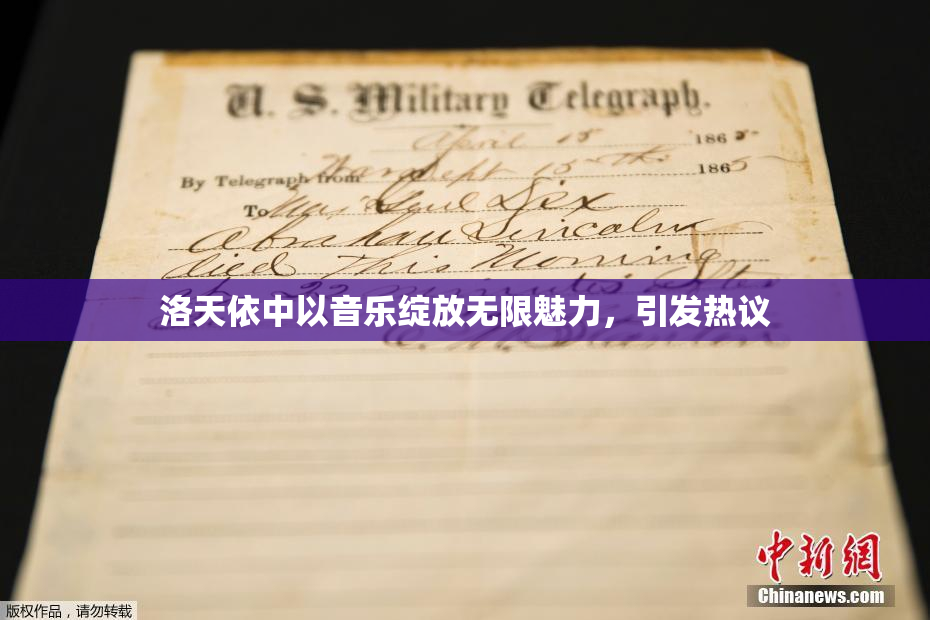 U. S. Military Telegraph.
April 15 1865
By Telegraph from War Dept 15th 1865
To Maj Genl Dix
Abraham Lincoln
died This Morning
at 22 minutes after
洛天依中以音乐绽放无限魅力，引发热议
E. M. Stanton
中新網
Chinanews.com
版权作品，请勿转载